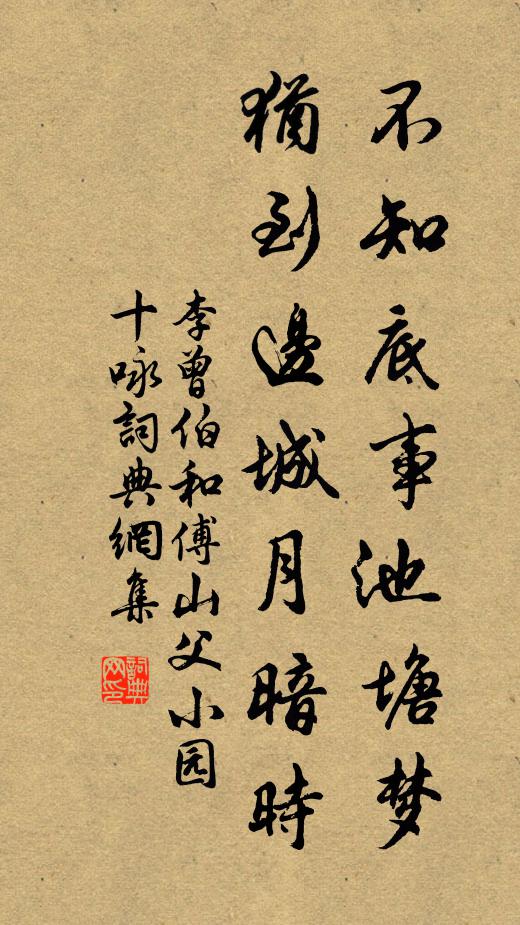 不知底事池塘梦
猶到邊城月暗時
李曾伯和傅山父小园
十咏詞典網集
詞典网印